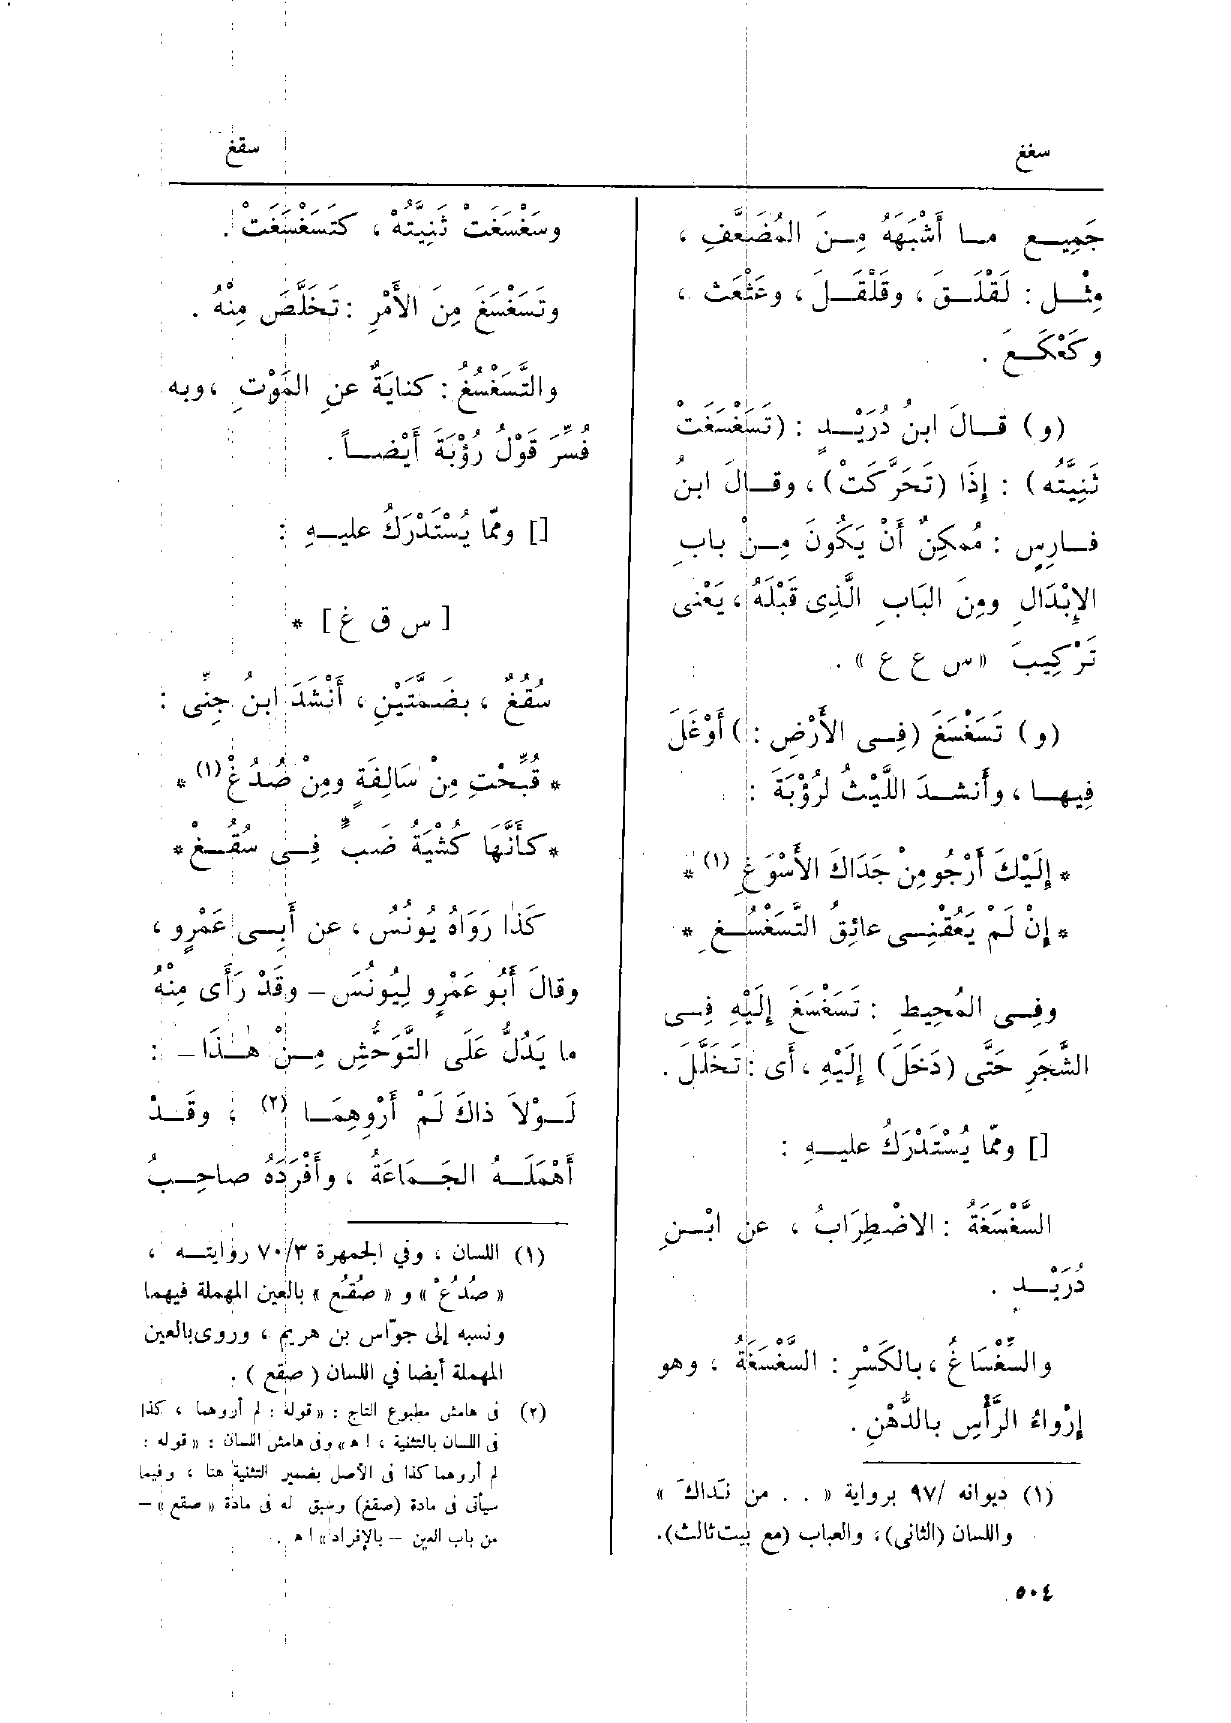 سغغ
سقغ
جَمِيعِ ما أَشْبَهَهُ مِنَ المُضَعَّفِ ،
مِثْل : لَقْلَقَ ، وقَلْقَلَ ، وعَثْعَثَ ،
وكَعْكَعَ .
(و) قالَ ابنُ دُرَيْدٍ : (تَسَغْسَغَتْ
ثَنِيَّتُه) : إِذَا (تَحَرَّكَتْ) ، وقالَ ابنُ
فارِسٍ : مُمكِنٌ أَنْ يَكُونَ مِنْ بابِ
الإِبْدَالِ ومِنَ البَابِ الَّذِى قَبْلَهُ ، يَعْنى
تَرْكِيبَ « س ع ع » .
(و) تَسَغْسَغَ (فِى الأَرْضِ :) أَوْغَلَ
فِيها ، وأَنشدَ اللَّيْثُ لرُؤْبَةَ :
* إِلَيْكَ أَرْجُو مِنْ جَدَاكَ الأَسْوَغِ (١) *
* إِنْ لَمْ يَعُقْنِى عائِقُ التَّسَغْسُغِ *
وفِى المُحِيطِ : تَسَغْسَغَ إِلَيْهِ فِى
الشَّجَرِ حَتَّى (دَخَلَ) إِلَيْهِ ، أَى : تَخَلَّلَ .
[] ومّا يُسْتَدْرَكُ عليهِ :
السَّغْسَغَةُ : الاضْطِرَابُ ، عن ابْنِ
دُرَيْدٍ .
والسِّغْسَاغُ ، بالكَسْرِ : السَّغْسَغَةُ ، وهو
إِرْوَاءُ الرَّأْسِ بالدُّهْنِ .
(١) ديوانه /٩٧ برواية « . . من نَداكَ »
واللسان (الثانى) ، والعباب (مع بيت ثالث) .
وسَغْسَغَتْ ثَنِيَّتُهُ ، كَتَسَغْسَغَتْ .
وتَسَغْسَغَ مِنَ الأَمْرِ : تَخَلَّصَ مِنْهُ .
والتَّسَغْسُغُ : كنايَةٌ عنِ المَوْتِ ، وبه
فُسِّرَ قَوْلُ رُؤْبَةَ أَيْضاً .
[] ومّا يُسْتَدْرَكُ عليهِ :
[ س ق غ ] *
سُقُغٌ ، بضَمَّتَيْنِ ، أَنْشَدَ ابنُ جِنِّى :
* قُبِّحْتِ مِنْ سَالِفَةٍ ومِنْ صُدُغْ (١) *
* كَأَنَّهَا كُشْيَةُ ضَبٍّ فِى سُقُغْ *
كَذا رَوَاهُ يُونُسُ ، عن أَبِى عَمْرٍو ،
وقالَ أَبُو عَمْرٍو لِيُونُسَ – وقَدْ رَأَى مِنْهُ
ما يَدُلُّ عَلَى التَّوَحُّشِ مِنْ هٰذَا – :
لَوْلاَ ذاكَ لَمْ أَرْوِهِمَا (٢) ، وقَدْ
أَهْمَلَهُ الجَمَاعَةُ ، وأَفْرَدَهُ صاحِبُ
(١) اللسان ، وفي الجمهرة ٧٠/٣ روايته ،
« صُدُعْ » و « صُقُعْ » بالعين المهملة فيهما
ونسبه إلى جوّاس بن هريم ، وروى بالعين
المهملة أيضا في اللسان ( صقع ) .
(٢) فى هامش مطبوع التاج : « قوله : لم أروهما ، كذا
فى اللسان بالتثنية ، ا ﻫ » وفى هامش اللسان : « قوله :
لم أروهما كذا فى الأصل بضمير التثنية هنا ، وفيما
سيأتى فى مادة (صقغ) وسبق له فى مادة « صقع » –
من باب العين – بالإفراد » ا ﻫ .
٥٠٤